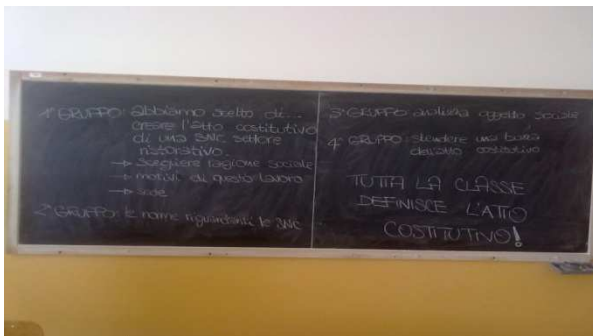 1° GRUPPO: abbiamo scelto di...
creare l'atto costitutivo
di una SNC settore
ristorativo.
→ Scegliere ragione sociale
→ motivi di questo lavoro
→ sede
2° GRUPPO: le norme riguardanti le SNC
3° GRUPPO: analizza oggetto sociale
4° GRUPPO: stendere una bozza
dell'atto costitutivo
TUTTA LA CLASSE
DEFINISCE L'ATTO
COSTITUTIVO!